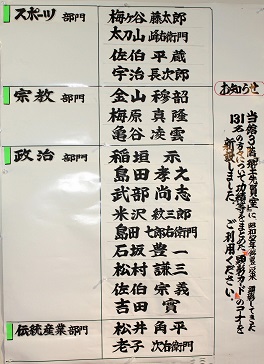 スポーツ 部門
梅ヶ谷 藤太郎
太刀山 峰右衛門
佐伯 平蔵
宇治 長次郎
宗教 部門
金山 穆韶
梅原 真隆
亀谷 凌雲
政治 部門
稲垣 示
島田 孝之
武部 尚志
米沢 紋三郎
島田 七郎右衛門
石坂 豊一
松村 謙三
佐伯 宗義
吉田 實
伝統産業 部門
松井 角平
老子 次右衛門
お知らせ
当館の2階郷土学習室に
131名の方々について功績等をまとめた顕彰カードのコーナを
新設しました。
ご利用ください。